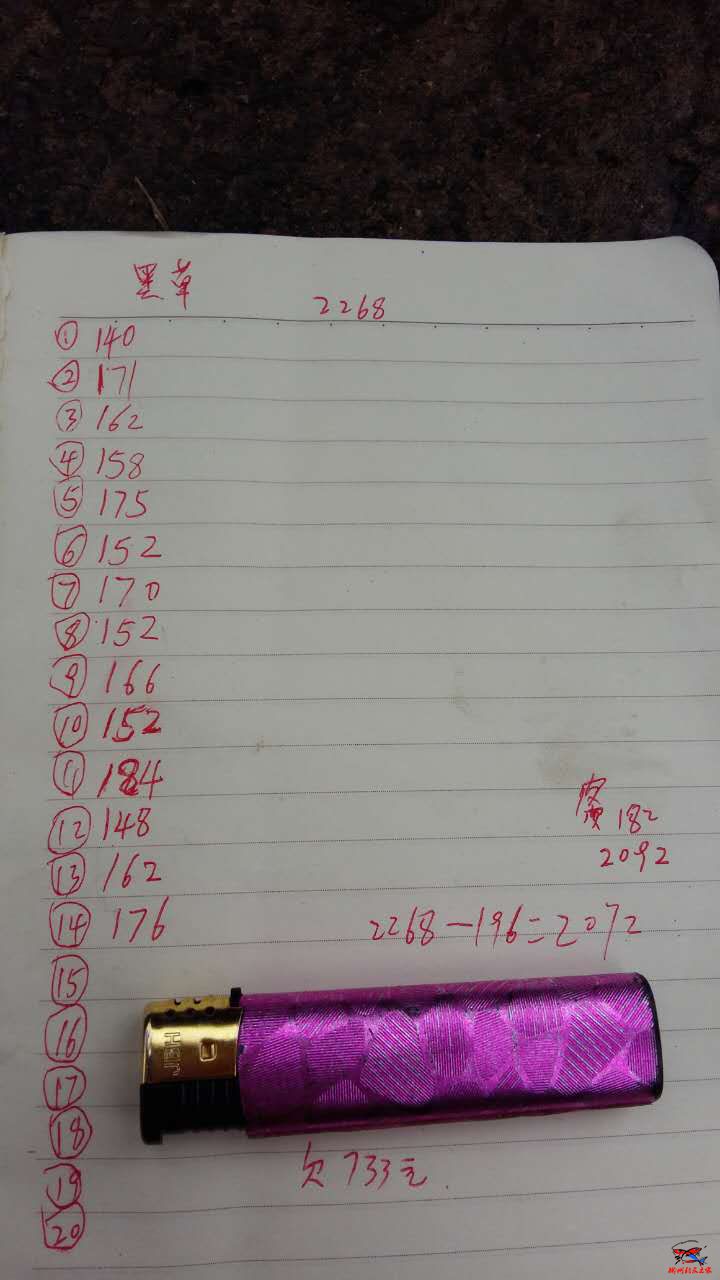 黑草
2268
① 140
② 171
③ 162
④ 158
⑤ 175
⑥ 152
⑦ 170
⑧ 152
⑨ 166
⑩ 152
⑪ 184
⑫ 148
⑬ 162
⑭ 176
182
2092
2268-196=2072
⑮
⑯
⑰
⑱
欠733元
⑲
⑳